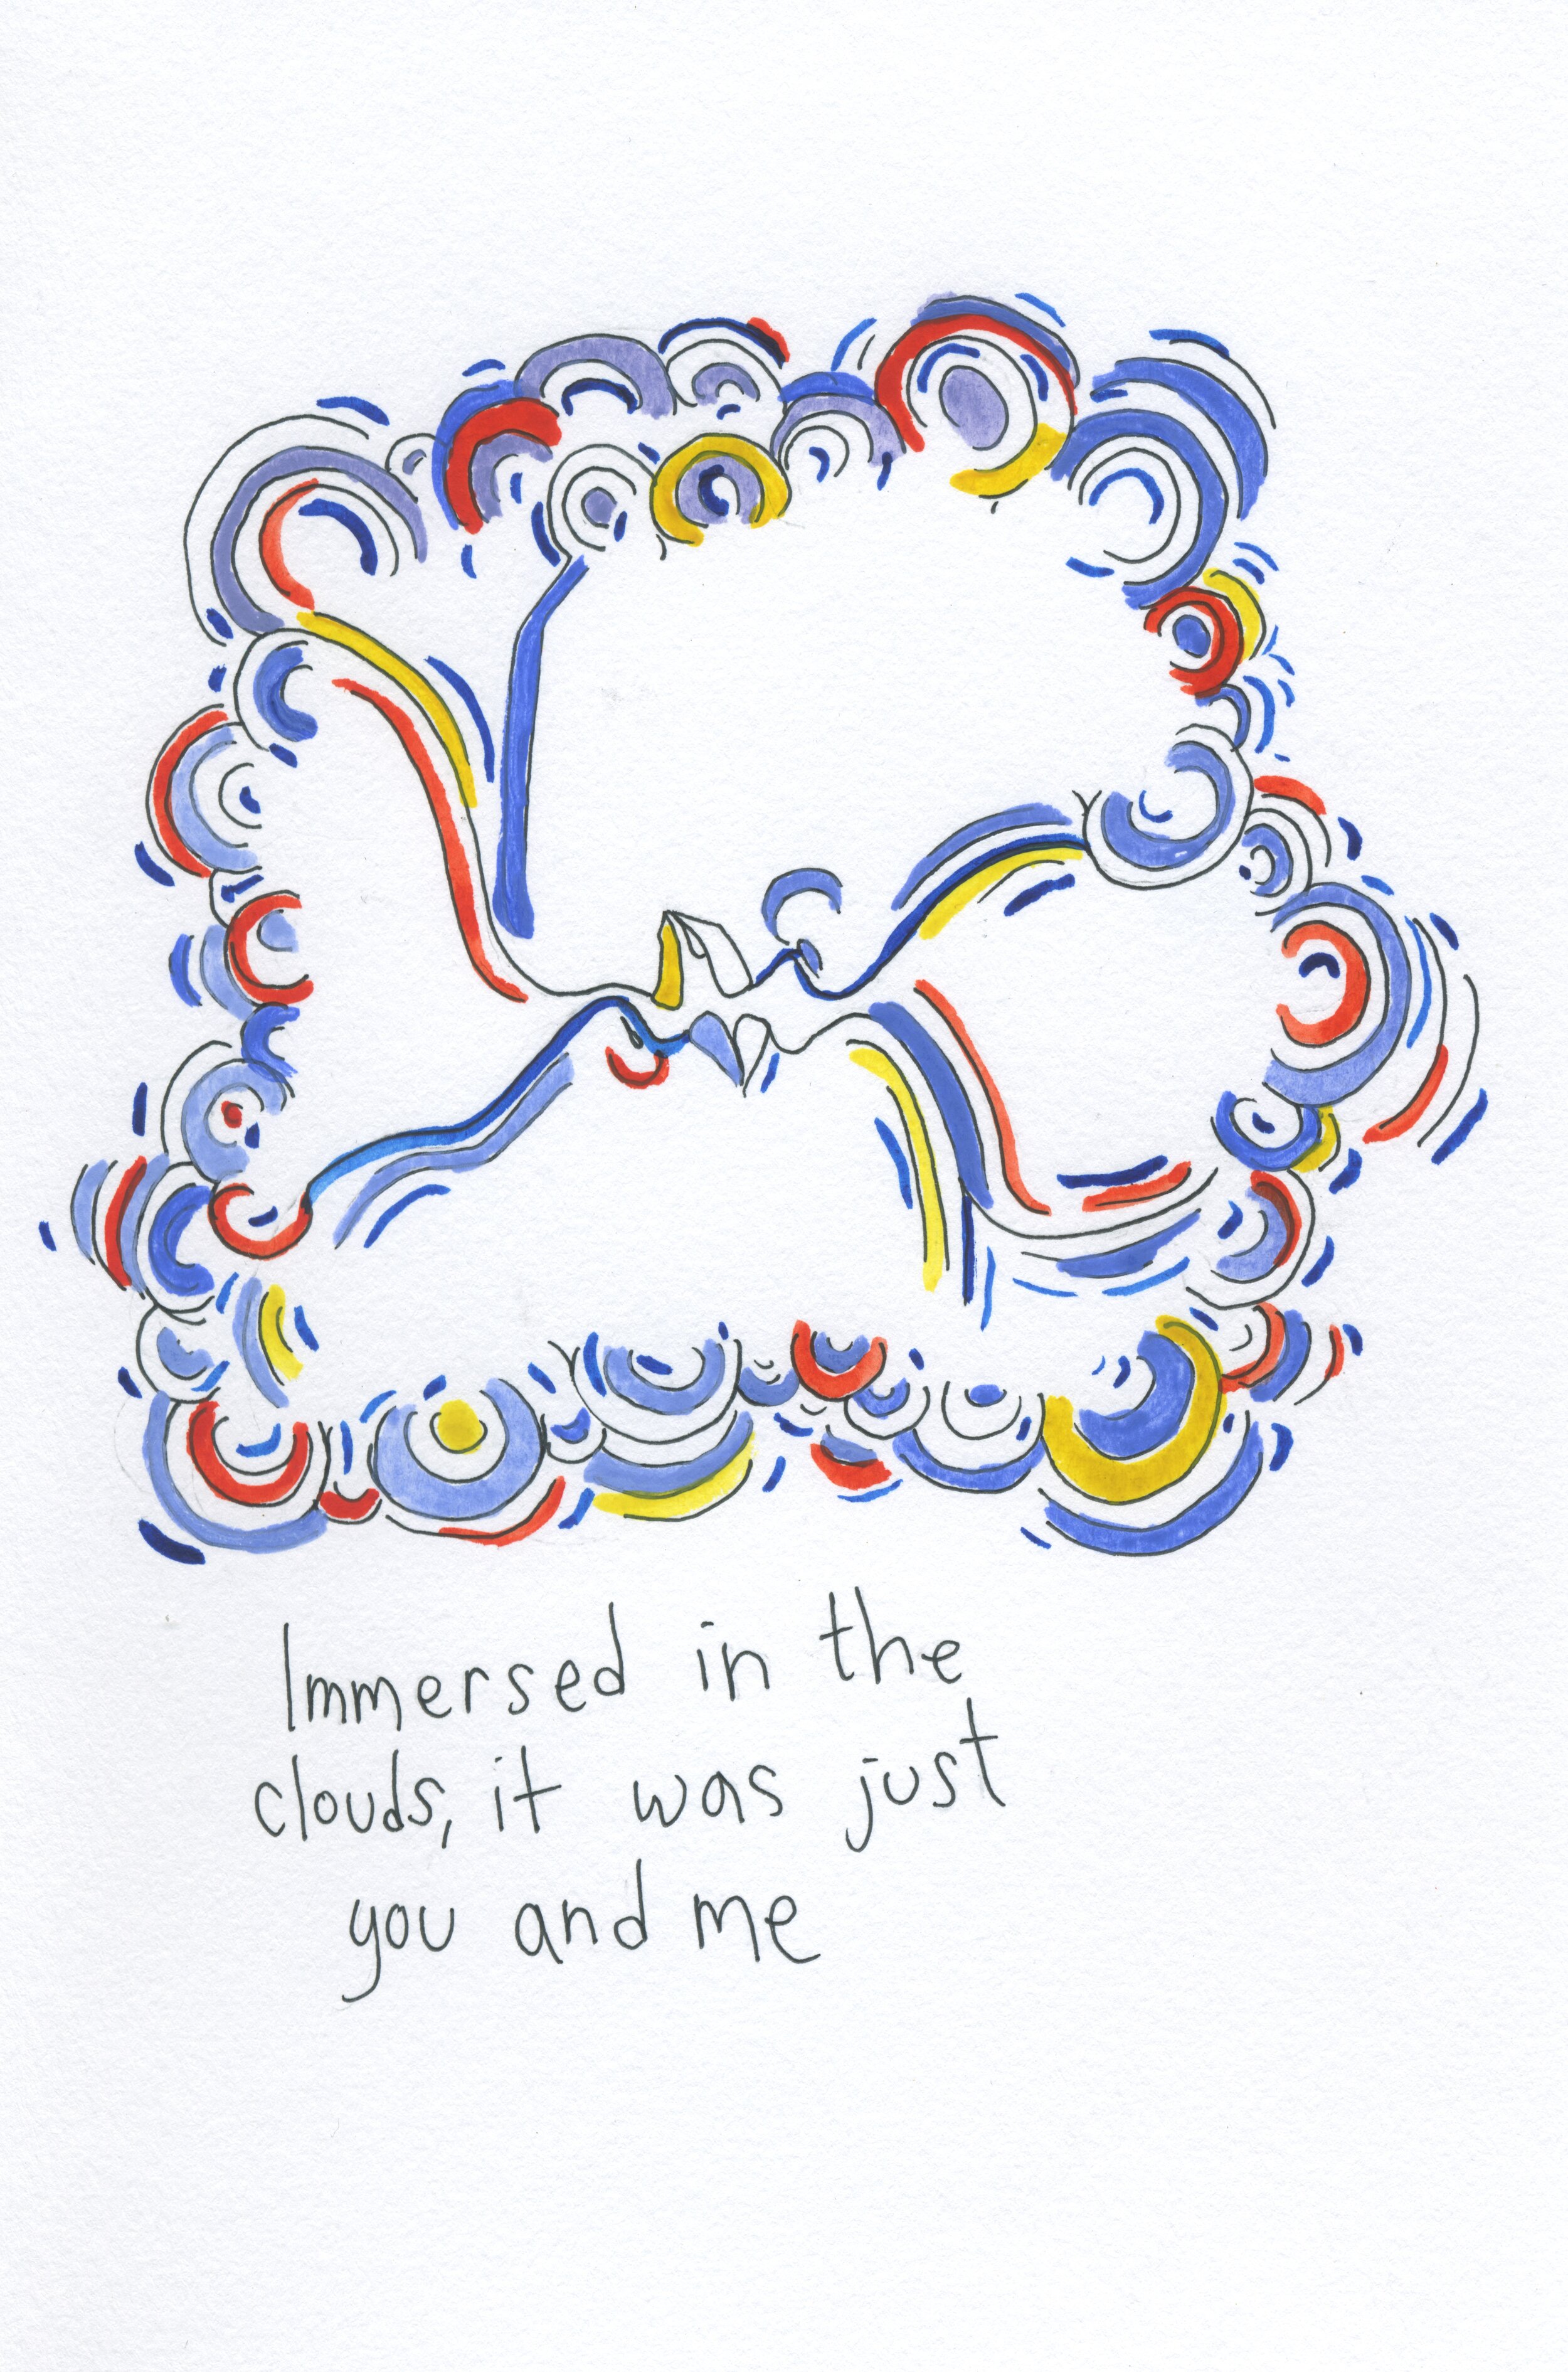 Immersed in the
clouds, it was just
you and me